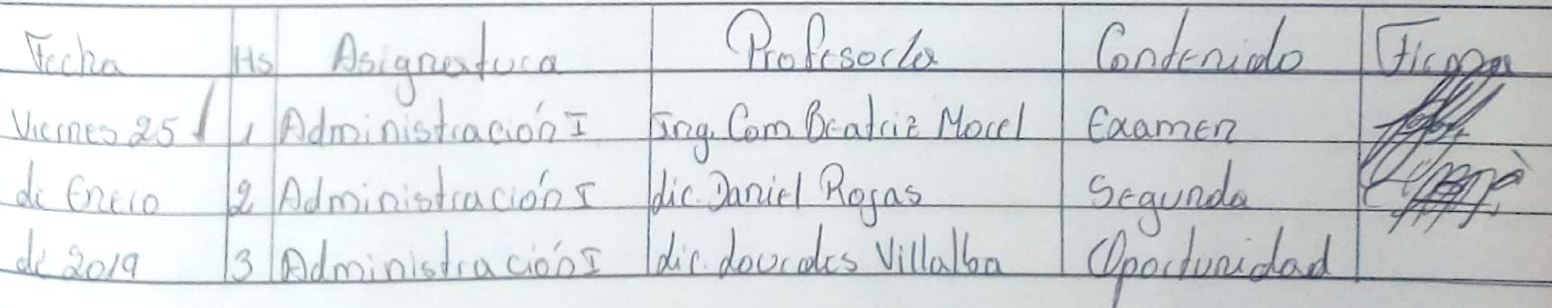 Fecha Hs Asignatura Profesor/a Contenido Firma
Viernes 25 1 Administración I Ing. Com Beatriz Morel Examen
de Enero 2 Administración I Lic. Daniel Rojas Segunda
de 2019 3 Administración I Lic. Lourdes Villalba Oportunidad